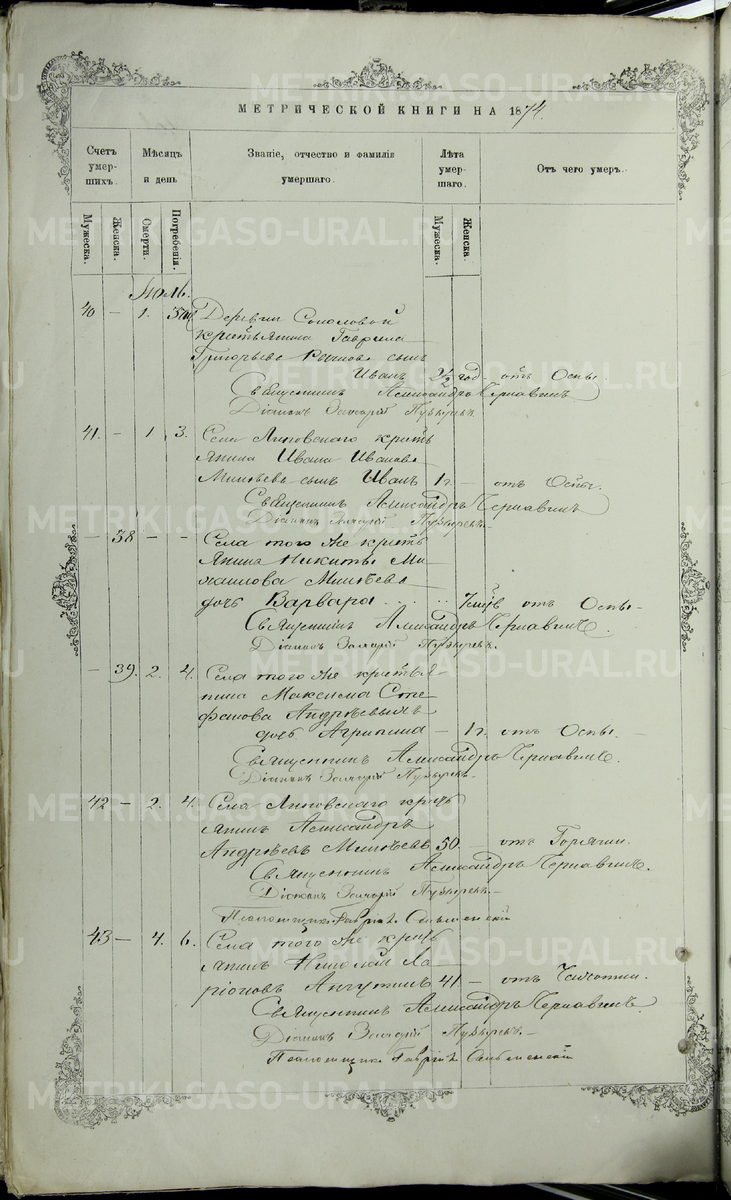 МЕТРИЧЕСКОЙ КНИГИ НА 1874.
Счетъ умершихъ.
Мѣсяцъ и день
Званіе, отчество и фамилія умершаго.
Лѣта умершаго.
Отъ чего умеръ.
Мужеска. Женска. Смерти. Погребенія. Мужеска. Женска.
Іюль.
40 — 1. 3. Деревни Соколовой
крестьянина Гаврила
Григорьева сынъ
Иванъ 2½ год. - отъ Оспы.
Священникъ Александръ Чернавинъ
Діаконъ Захарій Пузыревъ
41. — 1 3. Села Липовскаго кресть
янина Ивана Иванова
Минѣева сынъ Иванъ 1 г. — отъ Оспы.
Священникъ Александръ Чернавинъ
Діаконъ Захарій Пузыревъ.
— 38 — - Села того же кресть
янина Никиты Ми
хаилова Минѣева
дочь Варвара отъ Оспы
Священникъ Александръ Чернавинъ.
Діаконъ Захарій Пузыревъ.
— 39. 2. 4. Села того же крестья
нина Максима Сте
фанова Андрѣевыхъ
дочь Агрипина — 1 г. отъ Оспы. —
Священникъ Александръ Чернавинъ.
Діаконъ Захарій Пузыревъ.
42 — 2. 4. Села Липовскаго кресть
янинъ Александръ
Андрѣевъ Минѣевъ 50. — отъ Горячки.
Священникъ Александръ Чернавинъ.
Діаконъ Захарій Пузыревъ.
Псаломщикъ Гавріилъ
43 — 4. 6. Села того же кресть
янинъ Николай Ла
ріоновъ 41 — отъ Чахотки.
Священникъ Александръ Чернавинъ.
Діаконъ Захарій Пузыревъ. —
Псаломщикъ Гавріилъ
METRIKI.GASO-URAL.RU